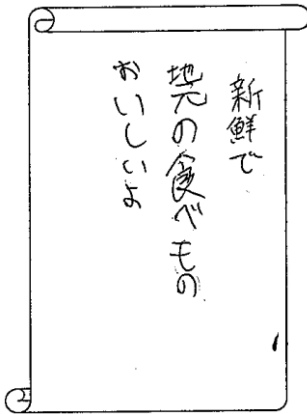 新鮮で
地元の食べもの
おいしいよ